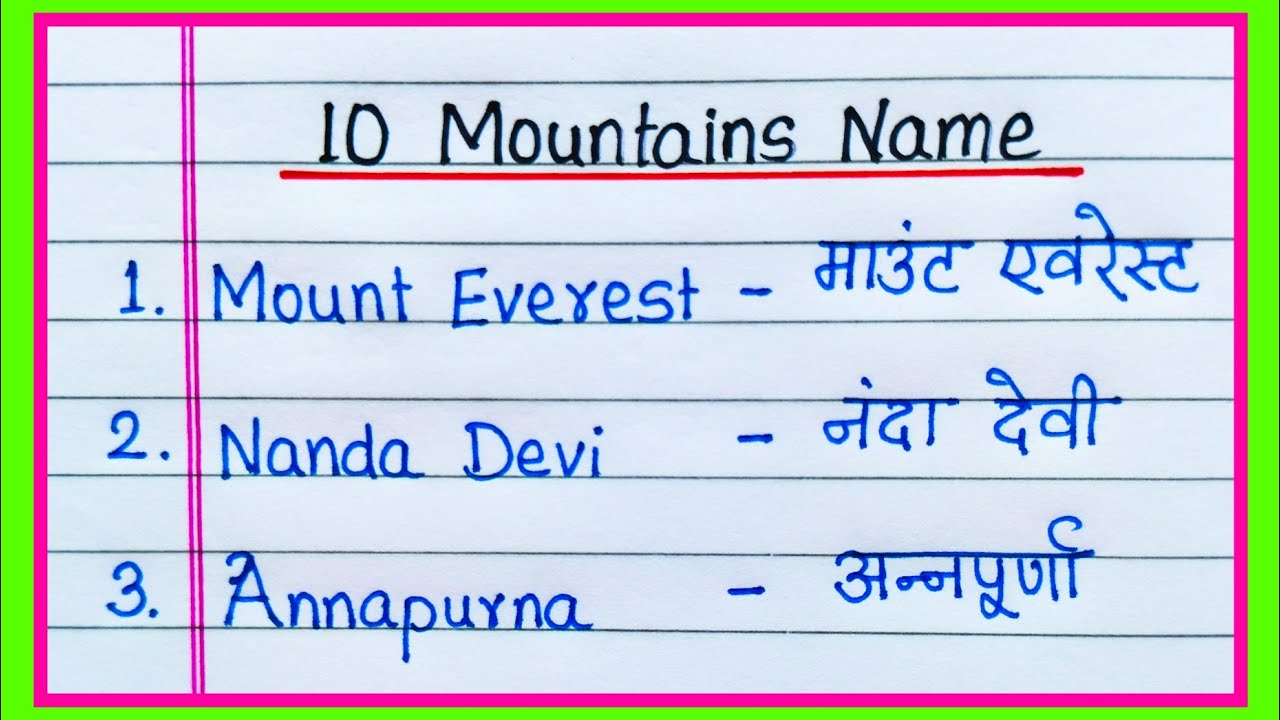 10 Mountains Name
1. Mount Everest - माउंट एवरेस्ट
2. Nanda Devi - नंदा देवी
3. Annapurna - अन्नपूर्णा